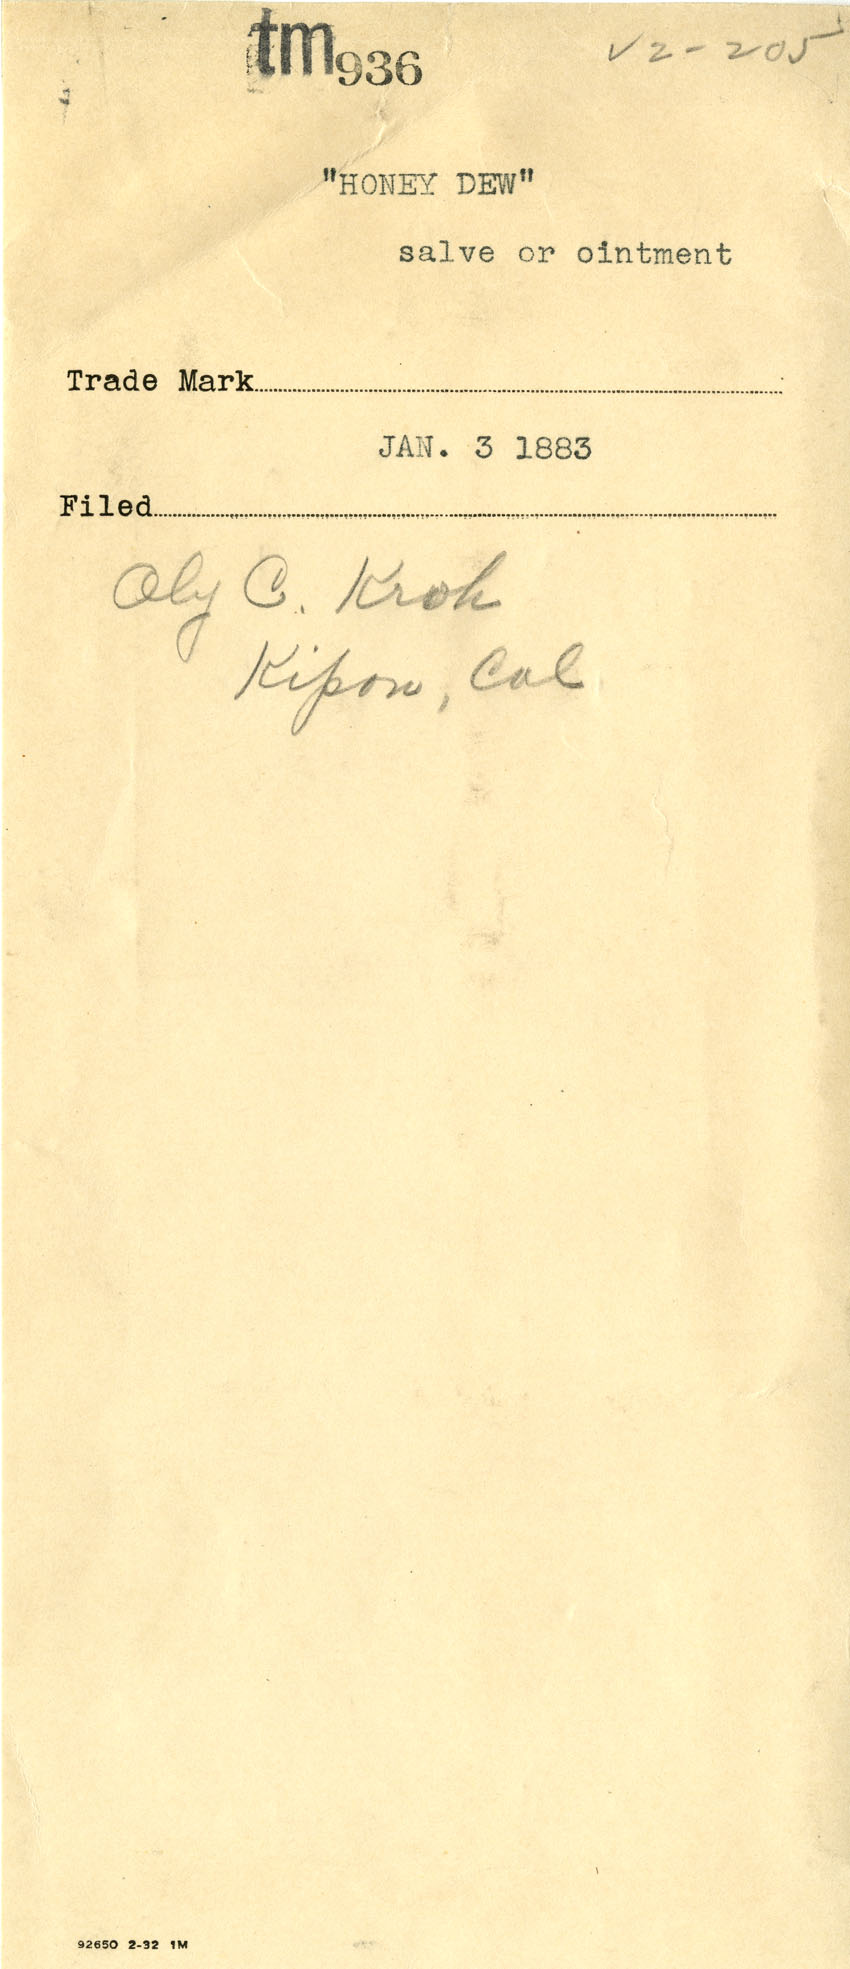 tm936
V2-205
"HONEY DEW"
salve or ointment
Trade Mark
JAN. 3 1883
Filed
Oly C. Kroh
Kipon, Cal
92650 2-32 1M